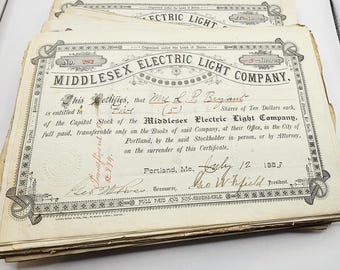 Organized under the Laws of Maine.
No. 282
MIDDLESEX ELECTRIC LIGHT COMPANY.
This Certifies, that Mr. L. P. Bryant
is entitled to Five (5) Shares of Ten Dollars each,
of the Capital Stock of the Middlesex Electric Light Company,
full paid, transferable only on the Books of said Company, at their Office, in the City of
Portland, by the said Stockholder in person, or by Attorney,
on the surrender of this Certificate.
Portland, Me. July 12 1883
Treasurer. President.
FULL PAID AND NON-ASSESSABLE